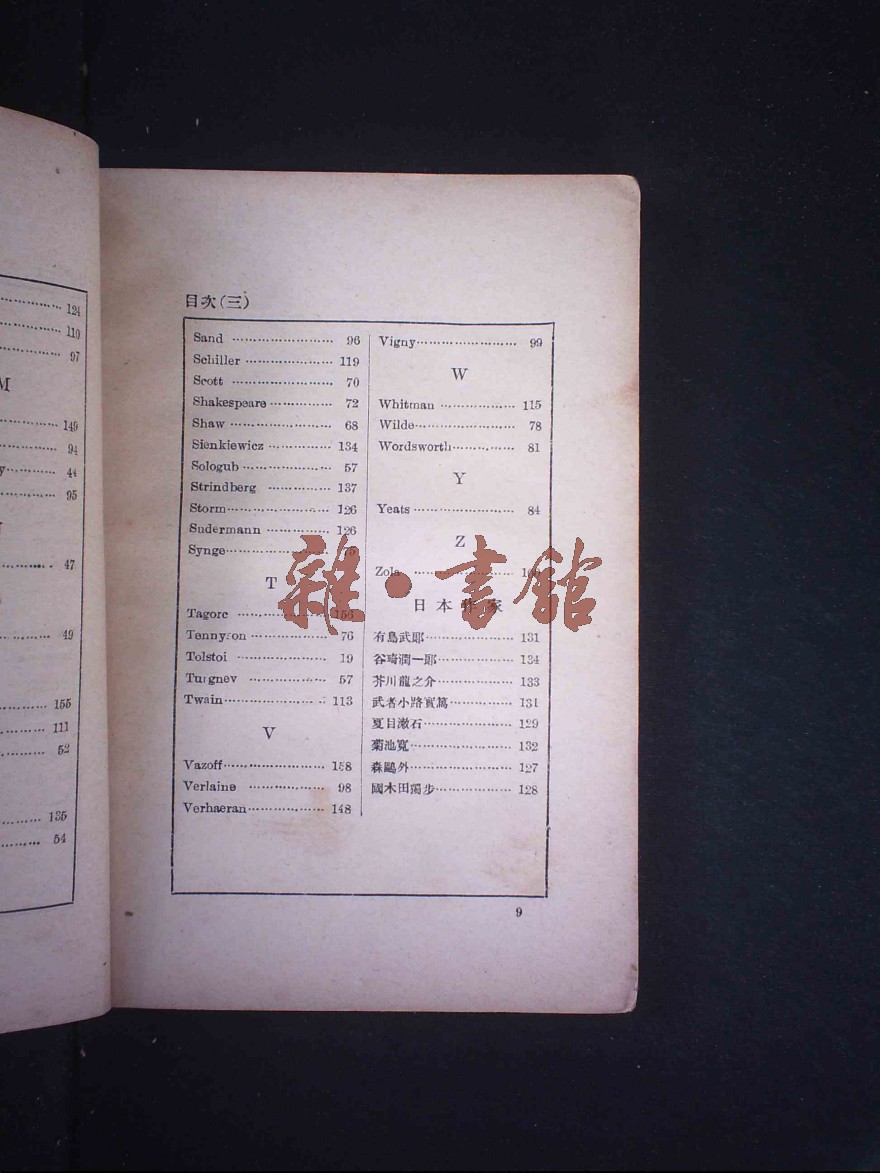 124
110
97
M
149
94
y………… 44
95
47
49
155
111
52
135
54
目次(三)
Sand ………………… 96
Schiller ………………… 119
Scott ………………… 70
Shakespeare ………… 72
Shaw ………………… 68
Sienkiewicz ………… 134
Sologub ……………… 57
Strindberg ………… 137
Storm………………… 126
Sudermann ………… 126
Synge…………………
T
Tagore ……………… 156
Tennyson …………… 76
Tolstoi ……………… 19
Turgnev …………… 57
Twain………………… 113
V
Vazoff………………… 158
Verlaine …………… 98
Verhaeran…………… 148
Vigny………………… 99
W
Whitman …………… 115
Wilde………………… 78
Wordsworth………… 81
Y
Yeats ………………… 84
Z
Zola …………………
日本作家
有島武郎……………… 131
谷崎潤一郎…………… 134
芥川龍之介…………… 133
武者小路實篤………… 131
夏目漱石……………… 129
菊池寬………………… 132
森鷗外………………… 127
國木田獨步…………… 128
9
雜·書館